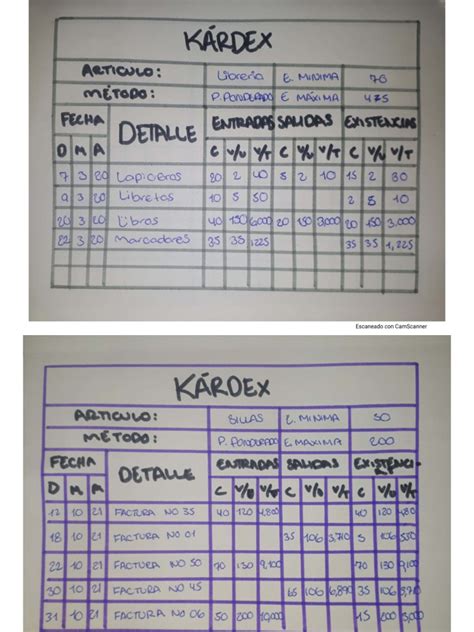 KÁRDEX
ARTICULO: Librería E. MINIMA 70
MÉTODO: P. PONDERADO E MÁXIMA 475
FECHA DETALLE ENTRADAS SALIDAS EXISTENCIAS
D M A C V/U V/T C V/U V/T C V/U V/T
7 3 20 Lapiceros 20 2 40 5 2 10 15 2 30
9 3 20 Libretas 10 5 50 2 5 10
20 3 20 Libros 40 150 6,000 20 150 3,000 20 150 3,000
22 3 20 Marcadores 35 35 1225 35 35 1,225
Escaneado con CamScanner
KÁRDEX
ARTICULO: SILLAS E. MINIMA 50
MÉTODO: P. PONDERADO E. MAXIMA 200
FECHA DETALLE ENTRADAS SALIDAS EXISTENCIAS
D M A C V/U V/T C V/U V/T C V/U V/T
12 10 21 FACTURA NO 35 40 120 4,800 40 120 4,80
18 10 21 FACTURA NO 01 35 106 3,710 5 106 530
22 10 21 FACTURA NO 50 70 130 9,100 70 130 9,10
30 10 21 FACTURA NO 45 65 106 6,890 35 106 3,7
31 10 21 FACTURA NO 06 50 200 10,000 15 200 3,000